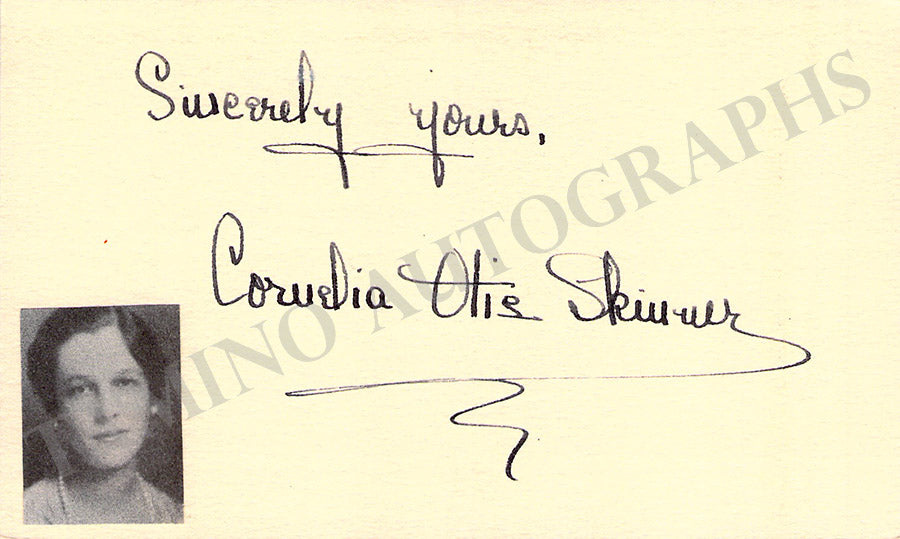 Sincerely yours,
Cornelia Otis Skinner
TAMINO AUTOGRAPHS